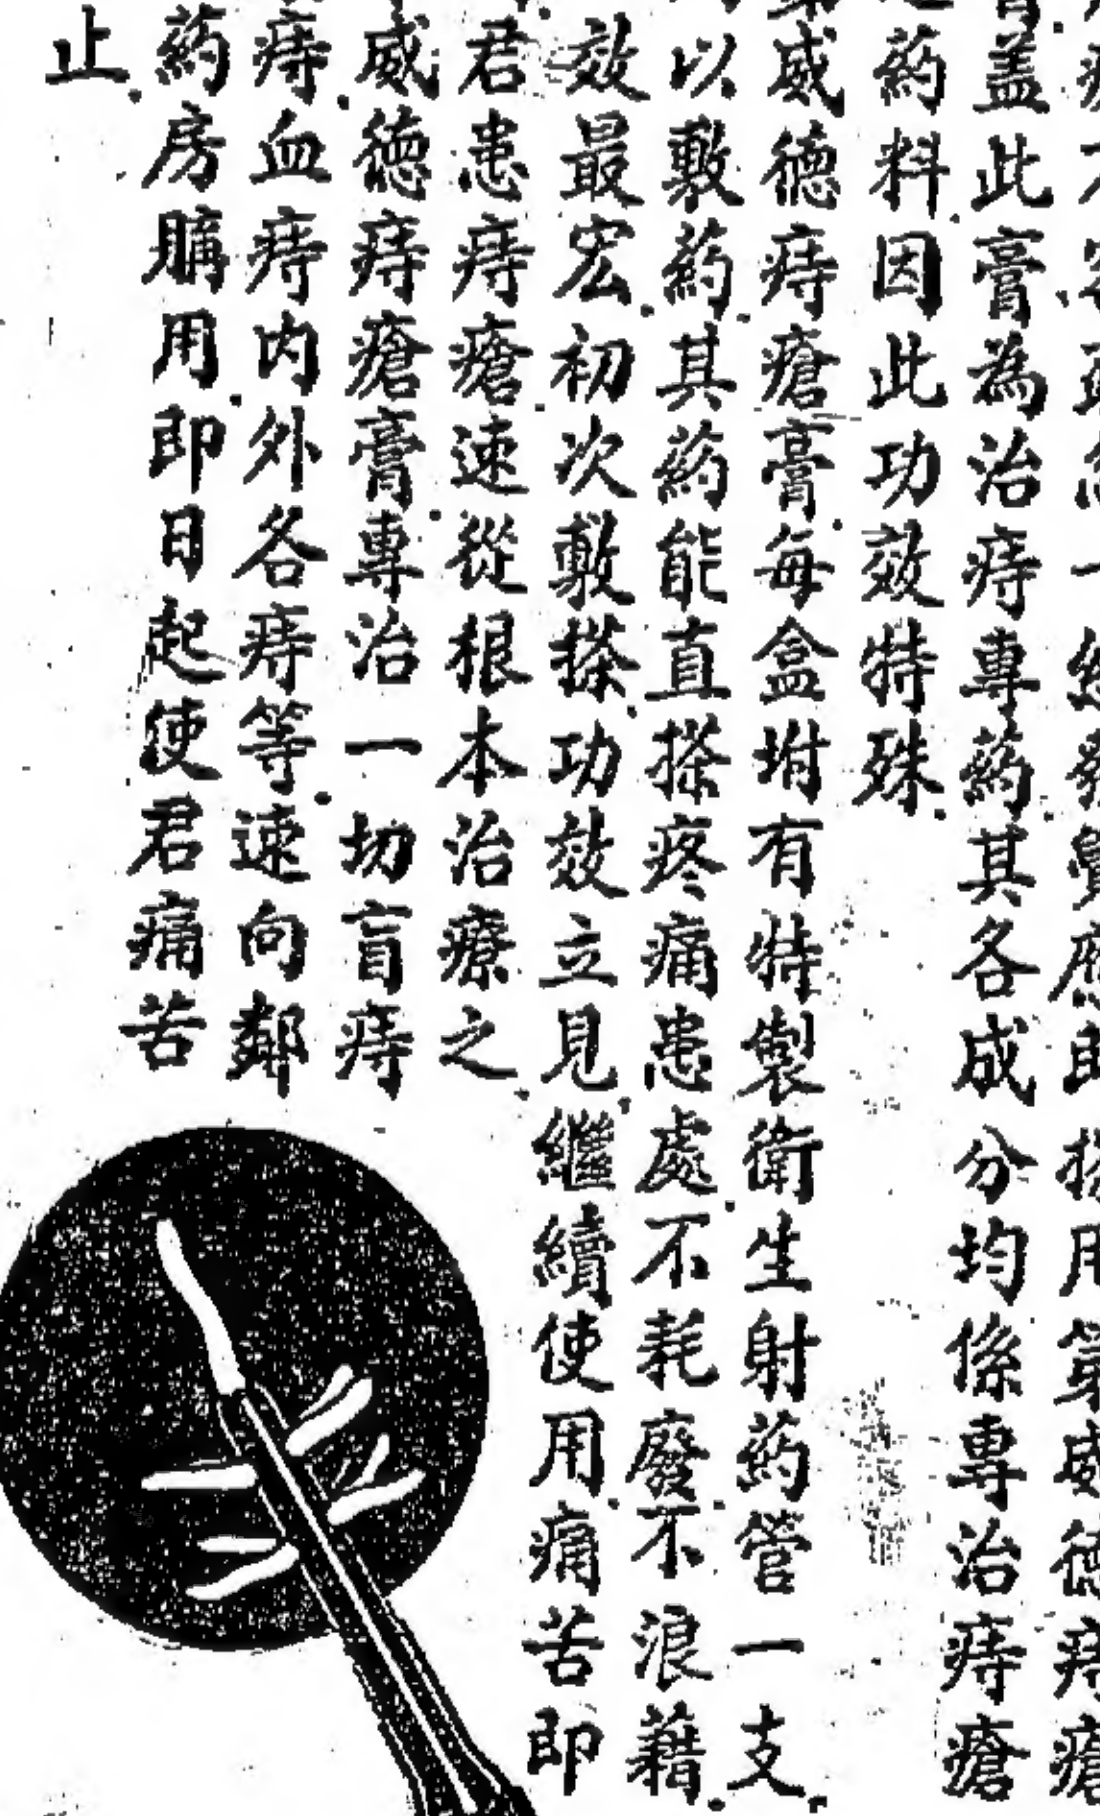 一經發覺應即搽用第威德痔瘡
膏盖此膏為治痔專葯其各成分均係專治痔瘡
葯料因此功效特殊
第威德痔瘡膏每盒坿有特製衛生射葯管一支
以敷葯其葯能直搽疼痛患處不耗廢不浪藉
效最宏初次敷搽功效立見繼續使用痛苦即
君患痔瘡速從根本治療之
威德痔瘡膏專治一切盲痔
痔血痔内外各痔等速向鄰
葯房購用即日起使君痛苦
止